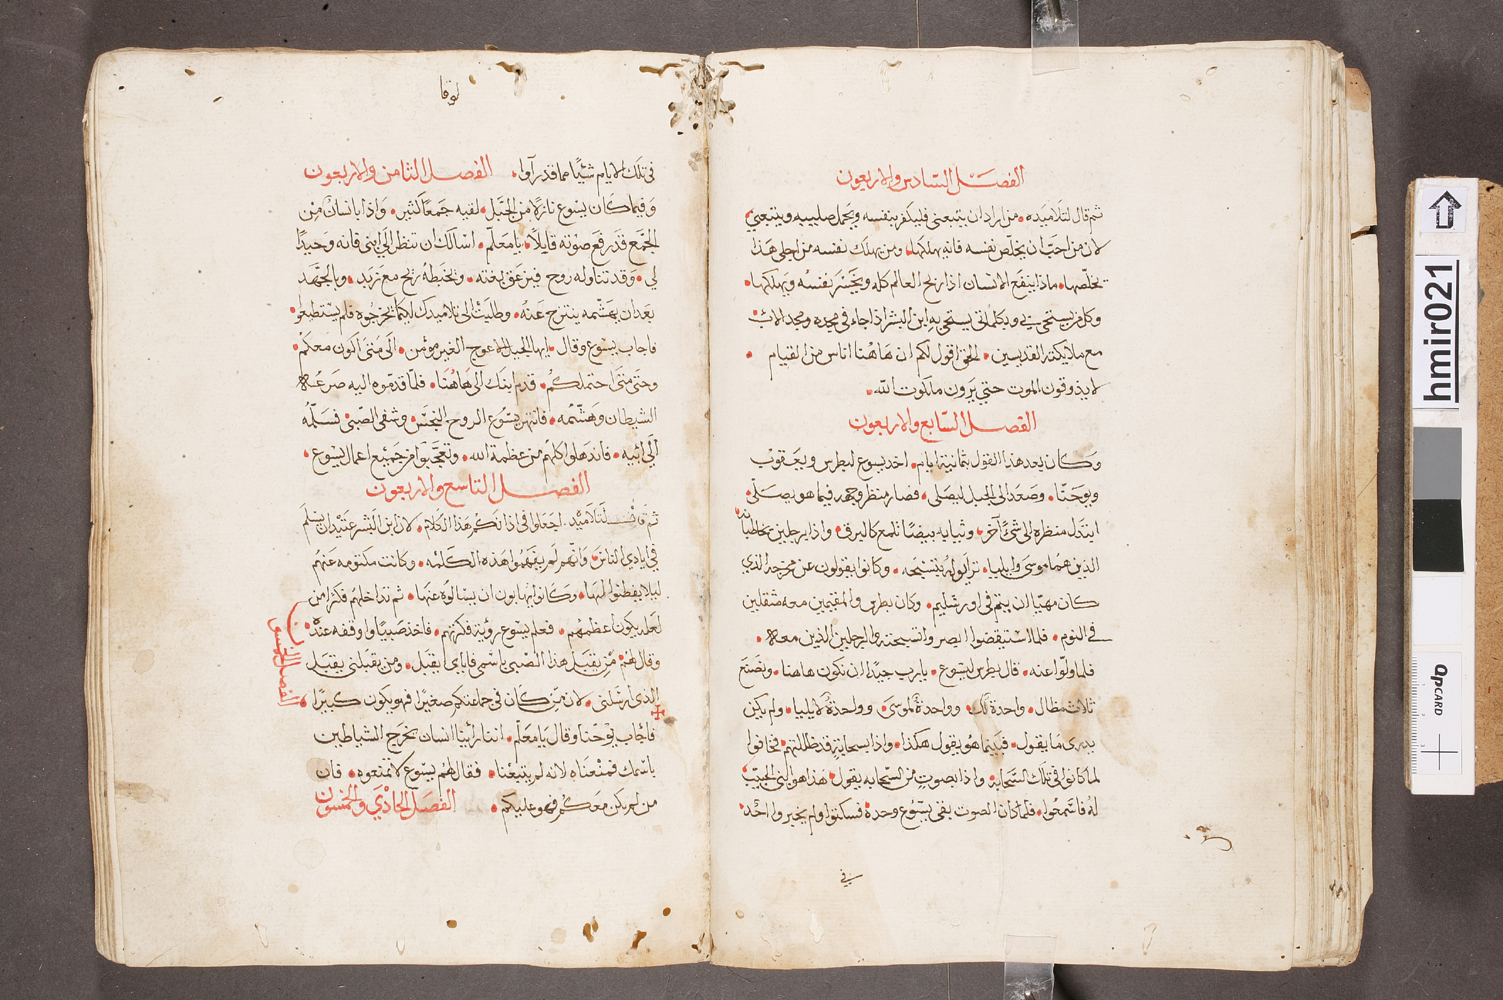 الفصل السادس والاربعون
ثم قال لتلاميده من اراد ان يتبعنى فليكفر بنفسه ويحمل صليبه ويتبعني
لان من احب ان يخلص نفسه فانه يهلكها ومن يهلك نفسه من اجلى هذا
يخلصها ماذا ينفع الانسان اذا ربح العالم كله ويخسر نفسه ويهلكها
وكل من يستحى بي وبكلماتى يستحى به ابن البشر اذا جاء في مجده ومجد الاب
مع ملايكته القديسين الحق اقول لكم ان هاهنا اناس من القيام
لا يذوقون الموت حتي يرون ملكوت الله
الفصل السابع والاربعون
وكان بعد هذا القول بثمانية ايام اخد يسوع لبطرس ويعقوب
ويوحنا وصعد الى الجبل ليصلى فصار منظر وجهه فيما هو يصلى
ابتدل منظره الى شئ آخر وثيابه بيضا تلمع كالبرق واذا برجلين يخاطبانه
الذين هما موسى وايليا ترايوا له بتسبحه وكانوا يقولون عن مخرجه الذي
كان مهيا ان يتم في اورشليم وكان بطرس والمقيمين معه مثقلين
في النوم فلما استيقضوا ابصروا تسبحته والرجلين الذين معه
فلما ولوا عنه قال بطرس ليسوع يارب جيدا ان نكون هاهنا ونصنع
ثلاث مظال واحدة لك وواحدة لموسى وواحدة لايليا ولم يكن
يدرى ما يقول فبينما هو يقول هكذا واذا بسحابة قد ظللتهم فخافوا
لما كانوا في تلك السحابة واذا بصوت من السحابه يقول هذا هو ابنى الحبيب
له فاسمعوا فلما كان الصوت بقى يسوع وحده فسكتوا ولم يخبروا احد
في
لوقا
فى تلك الايام شيئا مما قد رآوا الفصل الثامن والاربعون
وفيما كان يسوع نازلا من الجبل لقيه جمعا كثير واذا بانسان من
الجمع قد رفع صوته قايلا يا معلم اسالك ان تنظر الى ابنى فانه وحيدا
لي وقد تناوله روح فيزعق بغته ويخبطه ريح مع زبد وبالجهد
بعد ان يهشمه ينتزح عنه وطلبت الى تلاميدك لكيما يخرجوه فلم يستطيعوا
فاجاب يسوع وقال ايها الجيل الاعوج الغير مومن الى متى اكون معكم
وحتى متى احتملكم قدم ابنك الى هاهنا فلما قدموه اليه صرعه
الشيطان وهشمه فانتهر يسوع الروح النجس وشفى الصبى فسلمه
الى ابيه فاندهلوا كلهم من عظمة الله وتعجبوا من جميع اعمال يسوع
الفصل التاسع والاربعون
ثم قال لتلاميد اجعلوا في اذانكم هذا الكلام لان ابن البشر عتيد ان يسلم
في ايادى الناس وانهم لم يفهموا هذه الكلمه وكانت مكتومه عنهم
ليلا يفطنوا لها وكانوا يهابون ان يسالوه عنها ثم تداخلهم فكرا من
لعله يكون اعظمهم فعلم يسوع برؤية فكرتهم فاخذ صبيا واوقفه عنده
وقال لهم من يقبل هذا الصبى باسمى فاياى يقبل ومن يقبلنى يقبل
الذى ارسلنى لان من كان في جماعتكم صغيرا فهو يكون كبيرا
فاجاب يوحنا وقال يا معلم اننا راينا انسان يخرج الشياطين
باسمك فمنعناه لانه لم يتبعنا فقال لهم يسوع لا تمنعوه فان
من لم يكن معكم فهو عليكم الفصل الحادي والخمسون
الفصل الخمسون
hmir021
QPCARD